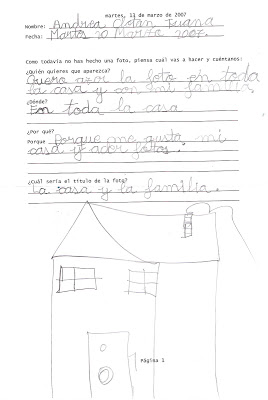 martes, 13 de marzo de 2007
Nombre: Andrea
Fecha: Martes 20 Marzo 2007.
Como todavía no has hecho una foto, piensa cuál vas a hacer y cuéntanos:
¿Quién quieres que aparezca?
Quiero azor la foto en toda
la casa y con mi familia
¿Dónde?
En toda la casa
¿Por qué?
Porque Porque me gusta mi
casa y acor fotos.
¿Cuál sería el título de la foto?
La casa y la familia.
Página 1